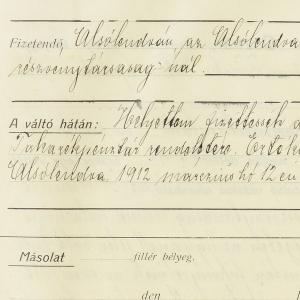 Fizetendő Alsólendván, az Alsólendva
részvénytársaság-nál.
A váltó hátán: Helyettem fizettessék a
Takarékpénztár rendeletére. Értéke
Alsólendva 1912 március hó 12 én
Másolat fillér bélyeg.
den